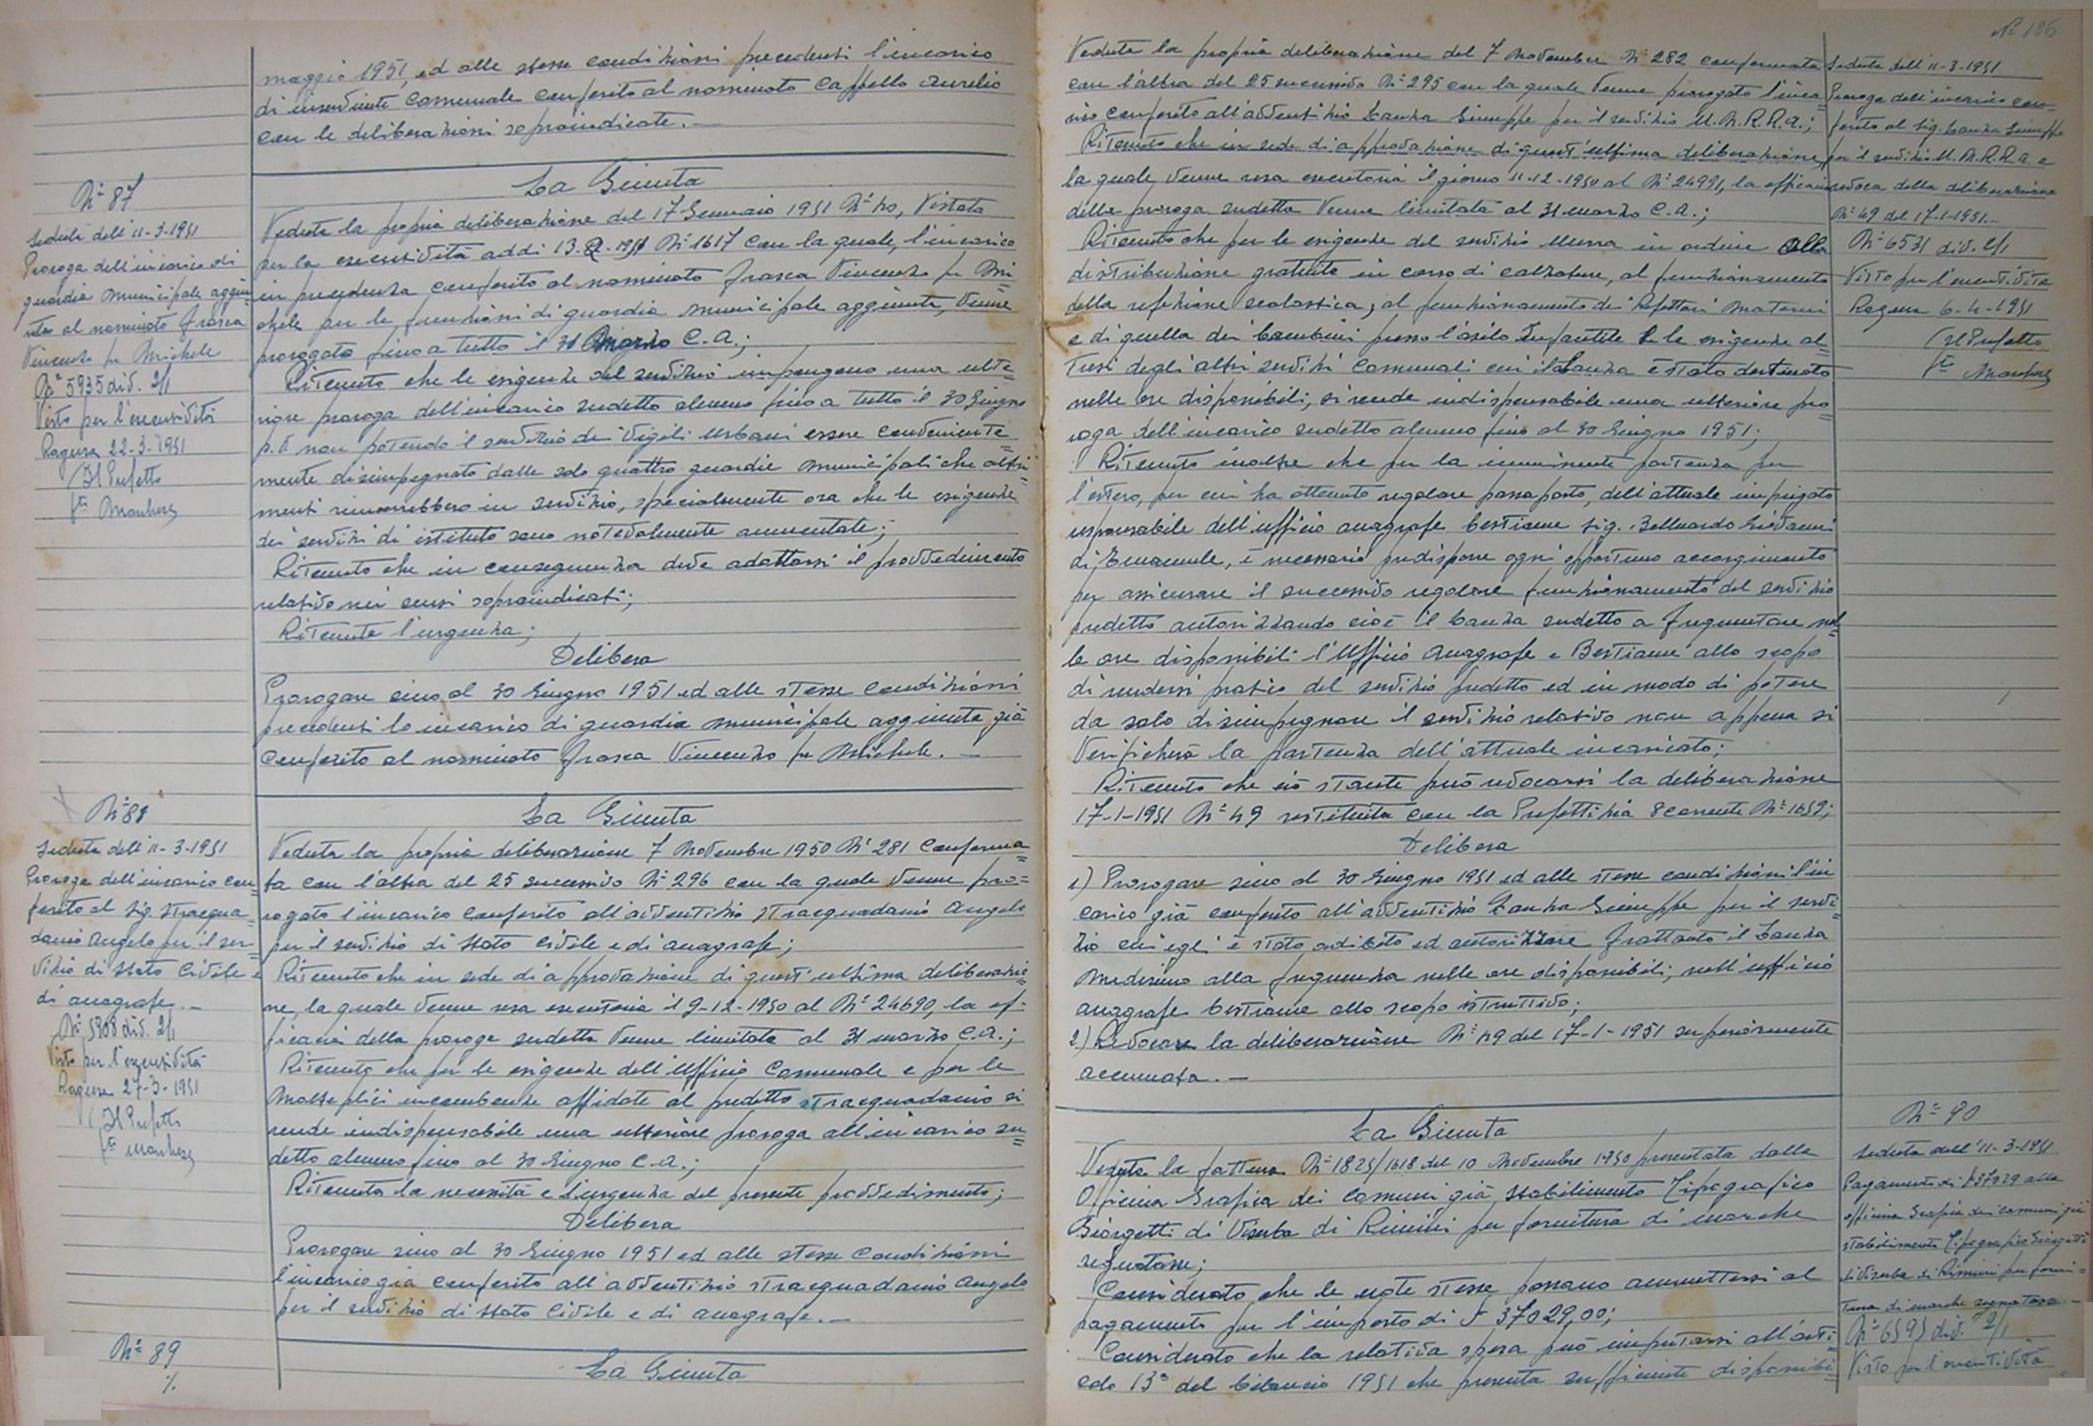 maggio 1951, ed alle stesse condizioni precedenti l'incarico
di inserviente Comunale conferito al nominato Cappello Aurelio
con le deliberazioni sopraindicate. —
N° 87
Seduta dell'11-3-1951
Proroga dell'incarico di
guardia municipale aggiun=
ta al nominato Frasca
Vincenzo fu Michele
N° 5935 div. 2/1
Visto per l'esecutività
Ragusa 22-3-1951
Il Prefetto
La Giunta
Veduta la propria deliberazione del 17 Gennaio 1951 N° 40, Vistata
per la esecutività addì 13.2.1951 N° 1617 con la quale, l'incarico
in precedenza conferito al nominato Frasca Vincenzo fu Mi=
chele per le funzioni di guardia municipale aggiunta, venne
prorogato fino a tutto il 31 Marzo C.A.;
Ritenuto che le esigenze del servizio impongono una ulte=
riore proroga dell'incarico sudetto almeno fino a tutto il 30 Giugno
p.v. non potendo il servizio dei Vigili Urbani essere conveniente=
mente disimpegnato dalle sole quattro guardie municipali che altri=
menti rimarrebbero in servizio, specialmente ora che le esigenze
dei servizi di istituto sono notevolmente aumentate;
Ritenuto che in conseguenza deve adottarsi il provvedimento
relativo nei sensi sopraindicati;
Ritenuta l'urgenza;
Delibera
Prorogare sino al 30 Giugno 1951 ed alle stesse condizioni
precedenti lo incarico di guardia municipale aggiunta già
conferito al nominato Frasca Vincenzo fu Michele. —
N° 88
Seduta dell'11-3-1951
Proroga dell'incarico con=
ferito al Sig. Stracqua=
danio Angelo per il ser=
vizio di Stato Civile e
di anagrafe. —
N° 5908 div. 2/1
Visto per l'esecutività
Ragusa 27-3-1951
Il Prefetto
La Giunta
Veduta la propria deliberazione 7 Novembre 1950 N° 281 Conferma=
ta con l'altra del 25 successivo N° 296 con la quale venne pro=
rogato l'incarico conferito all'avventizio Stracquadanio Angelo
per il servizio di Stato Civile e di anagrafe;
Ritenuto che in sede di approvazione di quest'ultima deliberazio=
ne, la quale venne resa esecutoria il 9-12-1950 al N° 24690, la ef=
ficacia della proroga sudetta venne limitata al 31 marzo C.A.;
Ritenuto che per le esigenze dell'Ufficio Comunale e per le
molteplici incombenze affidate al predetto Stracquadanio si
rende indispensabile una ulteriore proroga all'incarico su=
detto almeno fino al 30 Giugno C.A.;
Ritenuta la necessità e l'urgenza del presente provvedimento;
Delibera
Prorogare sino al 30 Giugno 1951 ed alle stesse condizioni
l'incarico già conferito all'avventizio Stracquadanio Angelo
per il servizio di Stato Civile e di anagrafe. —
N° 89
%
La Giunta
N° 186
Veduta la propria deliberazione del 7 Novembre N° 282 confermata
con l'altra del 25 successivo N° 295 con la quale venne prorogato l'inca=
rico conferito all'avventizio Lanza Giuseppe per il servizio U.N.R.R.A.;
Ritenuto che in sede di approvazione di quest'ultima deliberazione,
la quale venne resa esecutoria il giorno 11-12-1950 al N° 24991, la efficacia
della proroga sudetta venne limitata al 31 marzo C.A.;
Ritenuto che per le esigenze del servizio Unrra in ordine alla
distribuzione gratuita in corso di calzature, al funzionamento
della refezione scolastica, al funzionamento dei Refettori Materni
e di quella dei bambini presso l'asilo Infantile e le esigenze al=
tresì degli altri servizi Comunali cui il Lanza è stato destinato
nelle ore disponibili, si rende indispensabile una ulteriore pro=
roga dell'incarico sudetto almeno fino al 30 Giugno 1951;
Ritenuto inoltre che per la imminente partenza per
l'estero, per cui ha ottenuto regolare passaporto, dell'attuale impiegato
responsabile dell'ufficio anagrafe bestiame Sig. Belluardo Giovanni
di Emanuele, è necessario predisporre ogni opportuno accorgimento
per assicurare il successivo regolare funzionamento del servizio
predetto autorizzando cioè il Lanza sudetto a frequentare nel=
le ore disponibili l'Ufficio Anagrafe e Bestiame allo scopo
di rendersi pratico del servizio predetto ed in modo di potere
da solo disimpegnare il servizio relativo non appena si
verificherà la partenza dell'attuale incaricato;
Ritenuto che ciò stante può revocarsi la deliberazione
17-1-1951 N° 49 restituita con la Prefettizia 8 corrente N° 1659;
Delibera
1) Prorogare sino al 30 Giugno 1951 ed alle stesse condizioni l'in
carico già conferito all'avventizio Lanza Giuseppe per il servi=
zio cui egli è stato adibito ed autorizzare frattanto il Lanza
medesimo alla frequenza nelle ore disponibili, nell'ufficio
anagrafe bestiame allo scopo istruttivo;
2) Revocare la deliberazione N° 49 del 17-1-1951 superiormente
accennata. —
Seduta dell'11-3-1951
Proroga dell'incarico con=
ferito al Sig. Lanza Giuseppe
per il servizio U.N.R.R.A. e
revoca della deliberazione
N° 49 del 17-1-1951. —
N° 6531 div. 2/1
Visto per l'esecutività
Ragusa 6-4-1951
Il Prefetto
La Giunta
Veduta la fattura N° 1825/1618 del 10 Novembre 1950 presentata dalla
Officina Grafica dei Comuni già Stabilimento Tipografico
Giorgetti di Viserba di Rimini per fornitura di marche
segnatasse;
Considerato che le note stesse possano ammettersi al
pagamento per l'importo di £ 37029,00;
Considerato che la relativa spesa può imputarsi all'arti=
colo 13° del bilancio 1951 che presenta sufficiente disponibi=
N° 90
Seduta dell'11-3-1951
Pagamento di £ 37029 alla
officina Grafica dei comuni già
stabilimento Tipografico Giorgetti
di Viserba di Rimini per forni=
tura di marche segnatasse. —
N° 6595 div. 2/1
Visto per l'esecutività